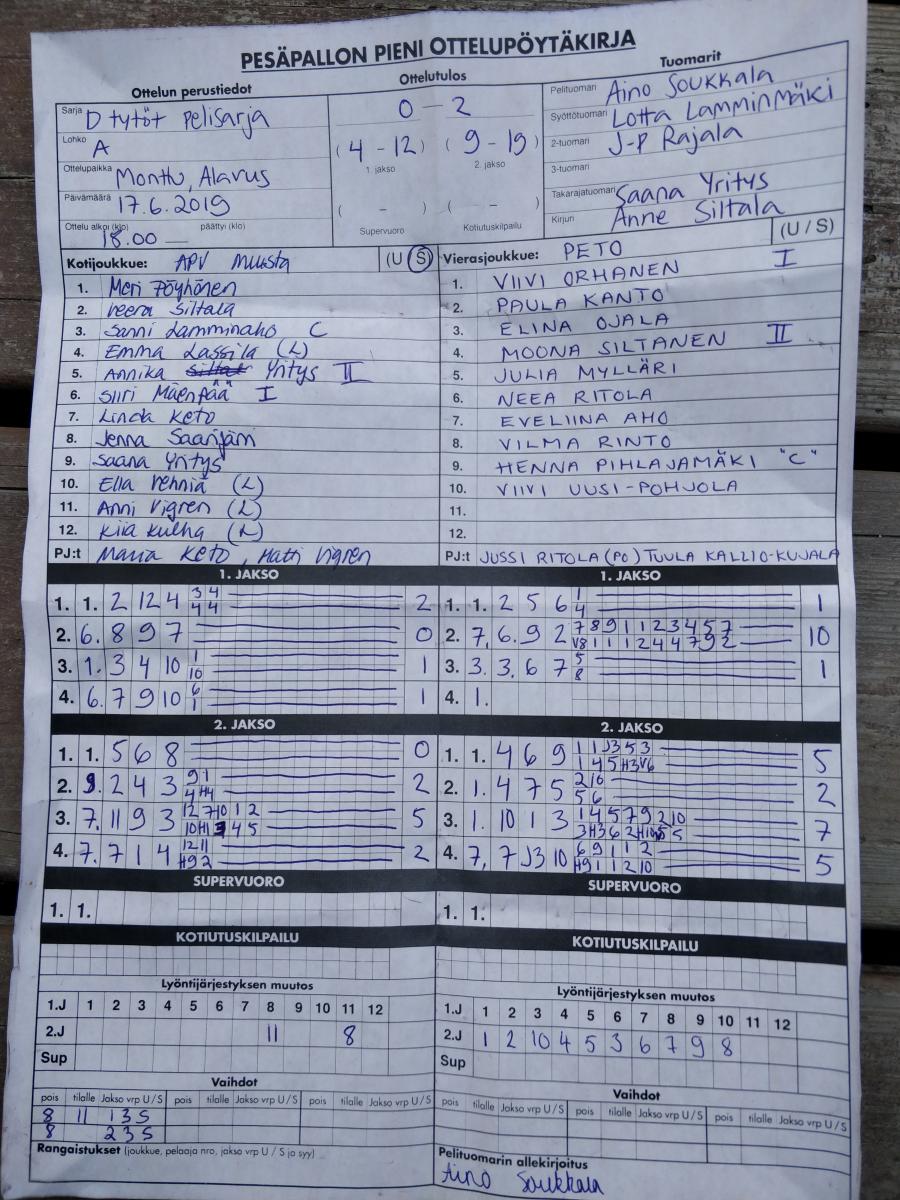 PESÄPALLON PIENI OTTELUPÖYTÄKIRJA
Ottelun perustiedot
Ottelutulos
Tuomarit
Sarja D tytöt pelisarja
Lohko A
Ottelupaikka Monttu, Alavus
Päivämäärä 17.6.2019
Ottelu alkoi (klo) 18.00 — päättyi (klo)
0 - 2
( 4 - 12 ) ( 9 - 19 )
1. jakso 2. jakso
( - ) ( - )
Supervuoro Kotiutuskilpailu
Pelituomari Aino Soukkala
Syöttötuomari Lotta Lamminmäki
2-tuomari J-P Rajala
3-tuomari
Takarajatuomari Saana Yritys
Kirjuri Anne Siltala
Kotijoukkue: APV Musta (U / S)
1. Meri Pöyhönen
2. Veera Siltala
3. Sanni Lamminaho C
4. Emma Lassila (L)
5. Annika Yritys II
6. Siiri Mäenpää I
7. Linda Keto
8. Jenna Saarijärvi
9. Saana Yritys
10. Ella Vehniä (L)
11. Anni Vigren (L)
12. Kiia Kulha (L)
PJ:t Maria Keto, Matti Vigren
Vierasjoukkue: PETO (U / S)
1. VIIVI ORHANEN I
2. PAULA KANTO
3. ELINA OJALA
4. MOONA SILTANEN II
5. JULIA MYLLÄRI
6. NEEA RITOLA
7. EVELIINA AHO
8. VILMA RINTO
9. HENNA PIHLAJAMÄKI "C"
10. VIIVI UUSI-POHJOLA
11.
12.
PJ:t JUSSI RITOLA (PO) TUULA KALLIO-KUJALA
1. JAKSO
1. 1. 2 12 4 3 4 2
4 4
2. 6. 8 9 7 0
3. 1. 3 4 10 1 1
10
4. 6. 7 9 10 6 1
1
1. JAKSO
1. 1. 2 5 6 1 1
4
2. 7, 6. 9 2 7 8 9 1 1 2 3 4 5 7 10
V8 1 1 1 2 4 4 7 9 2
3. 3. 3. 6 7 5 1
8
4. 1.
2. JAKSO
1. 1. 5 6 8 0
2. 9. 2 4 3 9 1 2
4 H4
3. 7. 11 9 3 12 7 10 1 2 5
10 H1 3 4 5
4. 7. 7 1 4 12 11 2
H9 2
2. JAKSO
1. 1. 4 6 9 1 1 J3 5 3 5
1 4 5 H3 V6
2. 1. 4 7 5 2 10 2
5 6
3. 1. 10 1 3 1 4 5 7 9 2 10 7
3 H3 6 2 H10 5 5
4. 7, 7 J3 10 6 9 1 1 2 5
H9 1 1 2 10
SUPERVUORO
1. 1.
SUPERVUORO
1. 1.
KOTIUTUSKILPAILU
KOTIUTUSKILPAILU
Lyöntijärjestyksen muutos
1.J 1 2 3 4 5 6 7 8 9 10 11 12
2.J 11 8
Sup
Lyöntijärjestyksen muutos
1.J 1 2 3 4 5 6 7 8 9 10 11 12
2.J 1 2 10 4 5 3 6 7 9 8
Sup
Vaihdot
pois tilalle Jakso vrp U / S pois tilalle Jakso vrp U / S pois tilalle Jakso vrp U / S
8 11 1 3 S
8 2 3 S
Vaihdot
pois tilalle Jakso vrp U / S pois tilalle Jakso vrp U / S pois tilalle Jakso vrp U / S
Rangaistukset (joukkue, pelaaja nro, jakso vrp U / S ja syy)
Pelituomarin allekirjoitus
Aino Soukkala